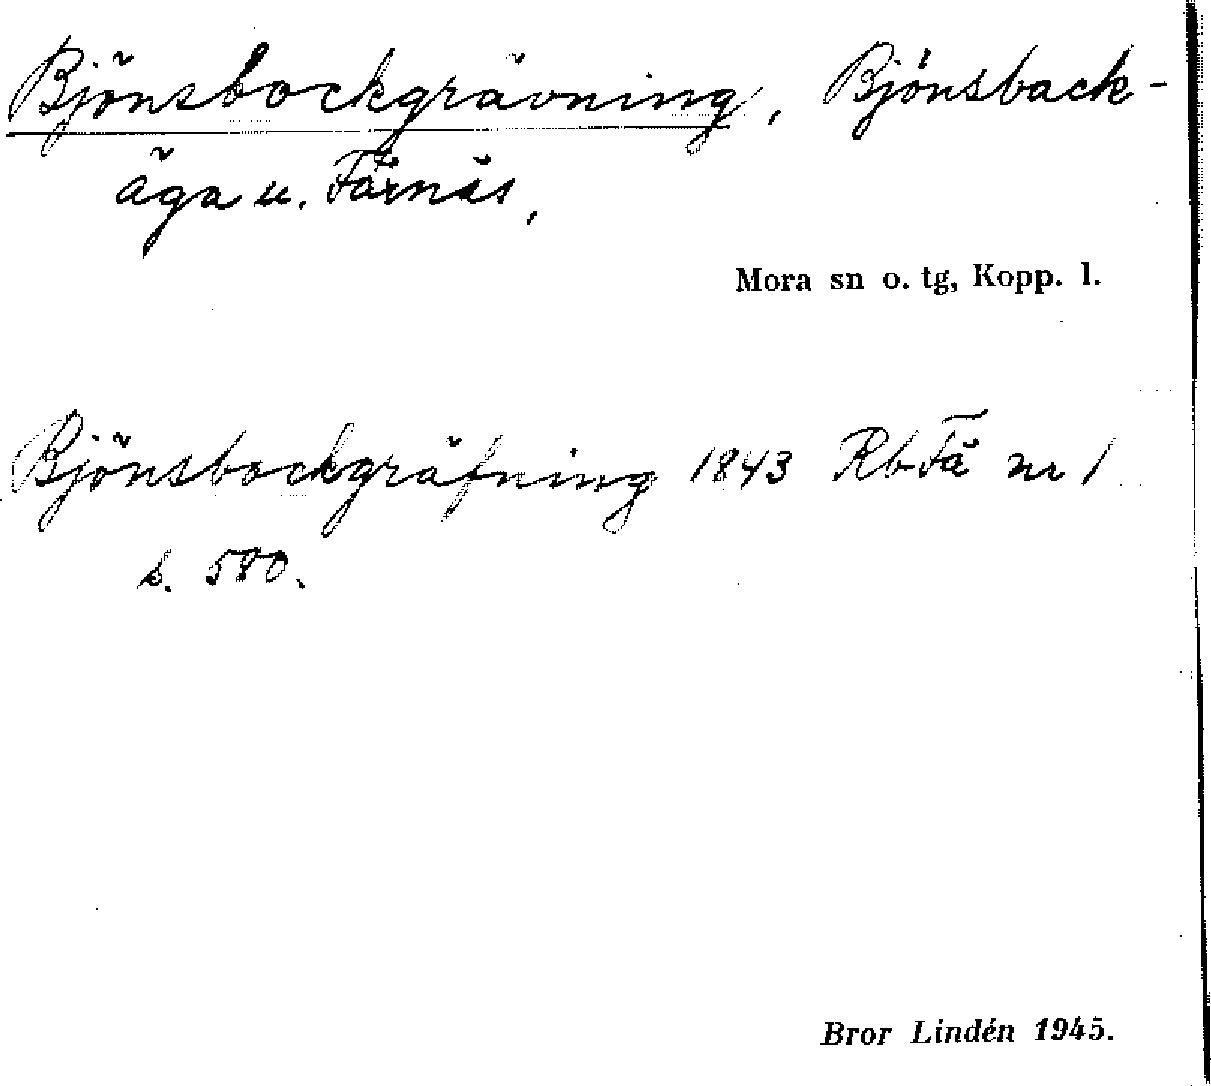 Bjönsbockgrävning, Bjönsback-
äga u. Färnäs,
Mora sn o. tg, Kopp. l.
Bjönsbockgräfning 1843 RbFä nr 1
s. 580.
Bror Lindén 1945.